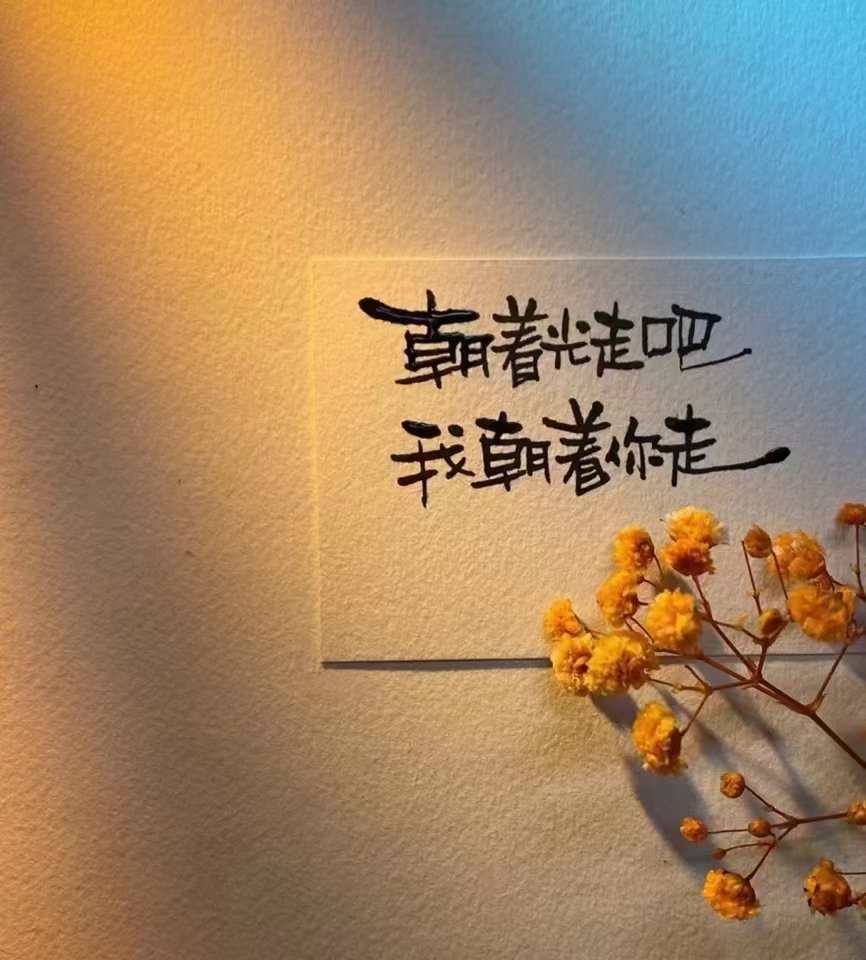 朝着光走吧
我朝着你走